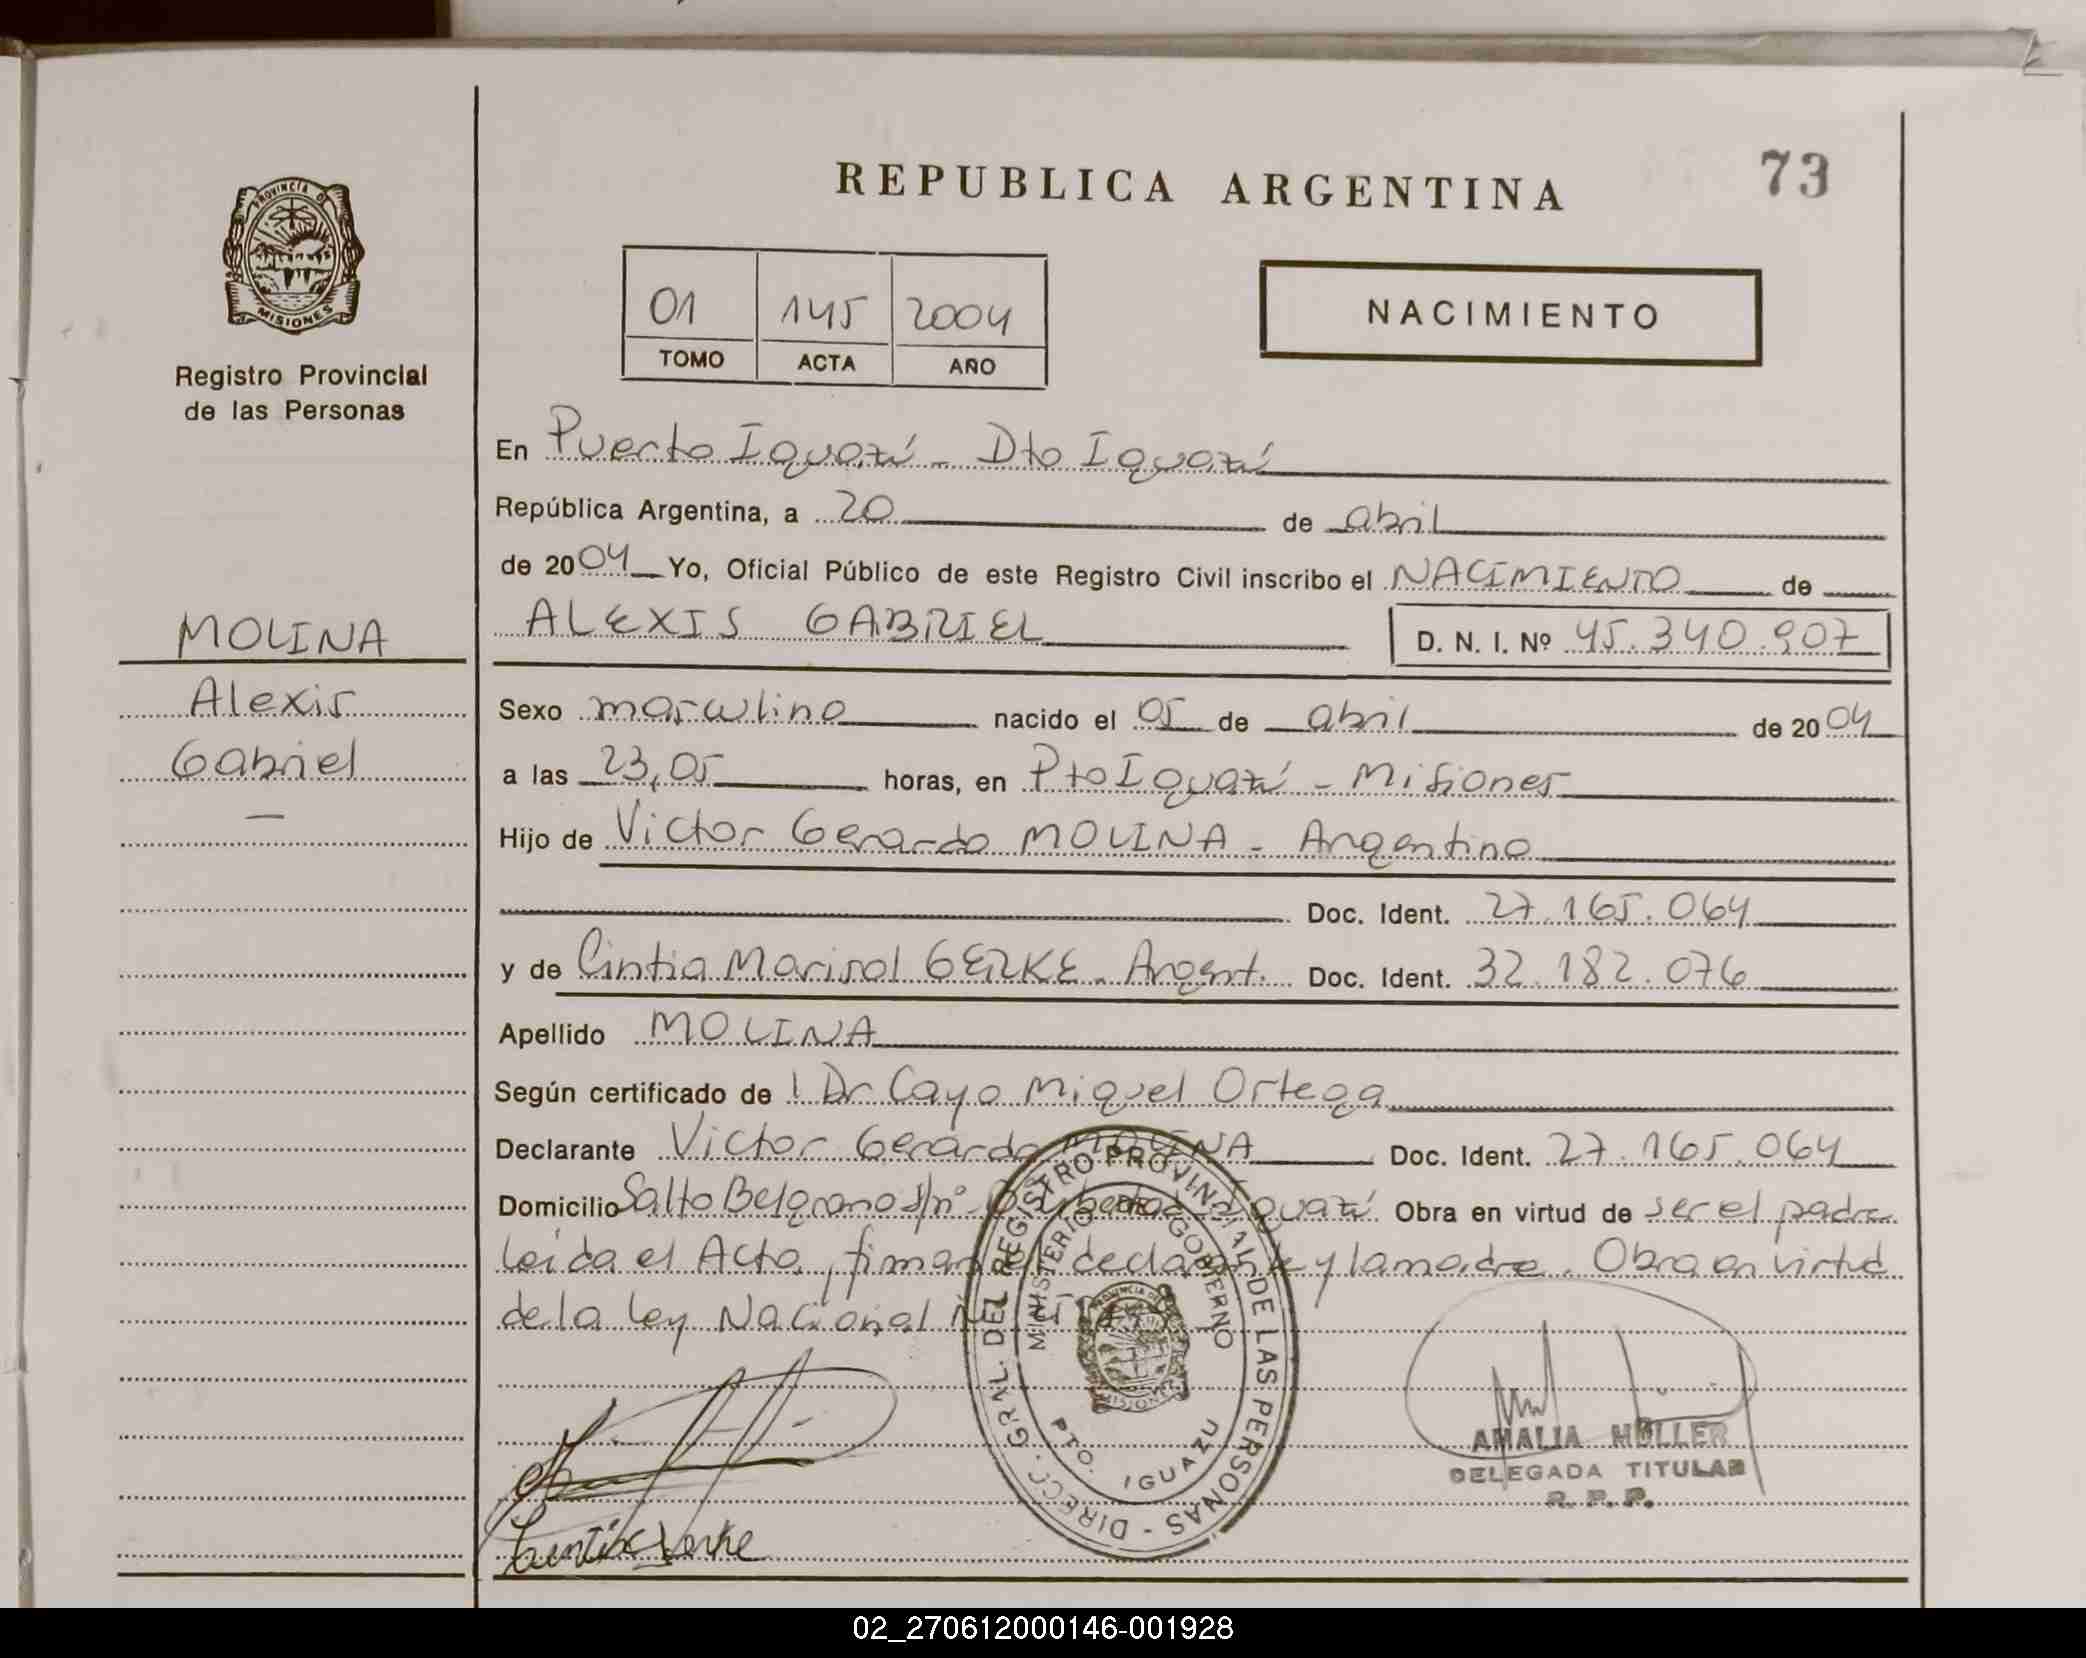 REPUBLICA ARGENTINA
73
PROVINCIA DE
MISIONES
Registro Provincial
de las Personas
01 145 2004
TOMO ACTA AÑO
NACIMIENTO
En Puerto Iguazú - Dto Iguazú
República Argentina, a 20 de abril
de 2004 Yo, Oficial Público de este Registro Civil inscribo el NACIMIENTO de
MOLINA
ALEXIS GABRIEL D. N. I. Nº 45.340.907
Alexis
Sexo masculino nacido el 05 de abril de 2004
Gabriel
a las 23,05 horas, en Pto Iguazú - Misiones
Hijo de Victor Gerardo MOLINA - Argentino
Doc. Ident. 27.165.064
y de Cintia Marisol GERKE - Argent. Doc. Ident. 32.182.076
Apellido MOLINA
Según certificado de Dr Cayo Miguel Ortega
Declarante Victor Gerardo MOLINA Doc. Ident. 27.165.064
Domicilio Salto Belgrano s/nº Libertad Iguazú Obra en virtud de ser el padre
leída el Acta, firman el declarante y la madre. Obra en virtud
de la ley Nacional
DIRECC. GRAL. DEL REGISTRO PROVINCIAL DE LAS PERSONAS
MINISTERIO DE GOBIERNO
PROVINCIA DE
MISIONES
PTO. IGUAZU
AMALIA MÜLLER
DELEGADA TITULAR
R. P. P.
Cintia Gerke
02_270612000146-001928